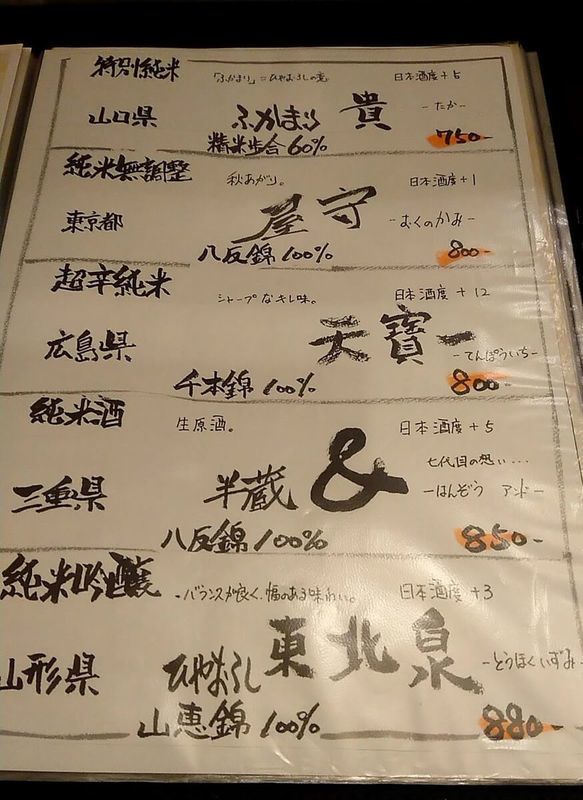 特別純米
「ふかまり」=ひやおろしの意
日本酒度+5
山口県
ふかまり 貴
-たか-
精米歩合60%
750-
純米無調整
秋あがり。
日本酒度+1
東京都
屋守
-おくのかみ-
八反錦100%
800-
超辛純米
シャープなキレ味。
日本酒度+12
広島県
天寶一
-てんぽういち-
千本錦100%
800-
純米酒
生原酒。
日本酒度+5
七代目の想い…
三重県
半蔵 &
-はんぞう アンド-
八反錦100%
850-
純米吟醸
-バランスが良く、幅のある味わい。
日本酒度+3
山形県
ひやおろし 東北泉
-とうほくいずみ-
山恵錦100%
880-